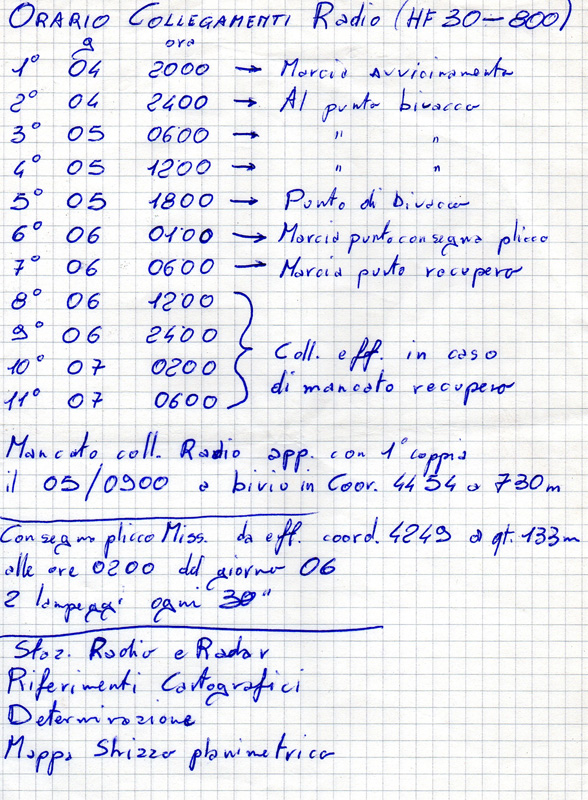 ORARIO COLLEGAMENTI Radio (HF 30-800)
g ora
1° 04 2000 → Marcia Avvicinamento
2° 04 2400 → Al punto bivacco
3° 05 0600 → " "
4° 05 1200 → " "
5° 05 1800 → Punto di bivacco
6° 06 0100 → Marcia punto consegna plico
7° 06 0600 → Marcia punto recupero
8° 06 1200
9° 06 2400
10° 07 0200
11° 07 0600
Coll. eff. in caso
di mancato recupero
Mancato coll. Radio app. con 1° coppia
il 05/0900 a bivio in Coor. 4454 a 730m
Consegna plico Miss. da eff. coord. 4249 a qt. 133m
alle ore 0200 del giorno 06
2 lampeggi ogni 30"
Staz. Radio e Radar
Riferimenti Cartografici
Determinazione
Mappa Shizzo planimetrico